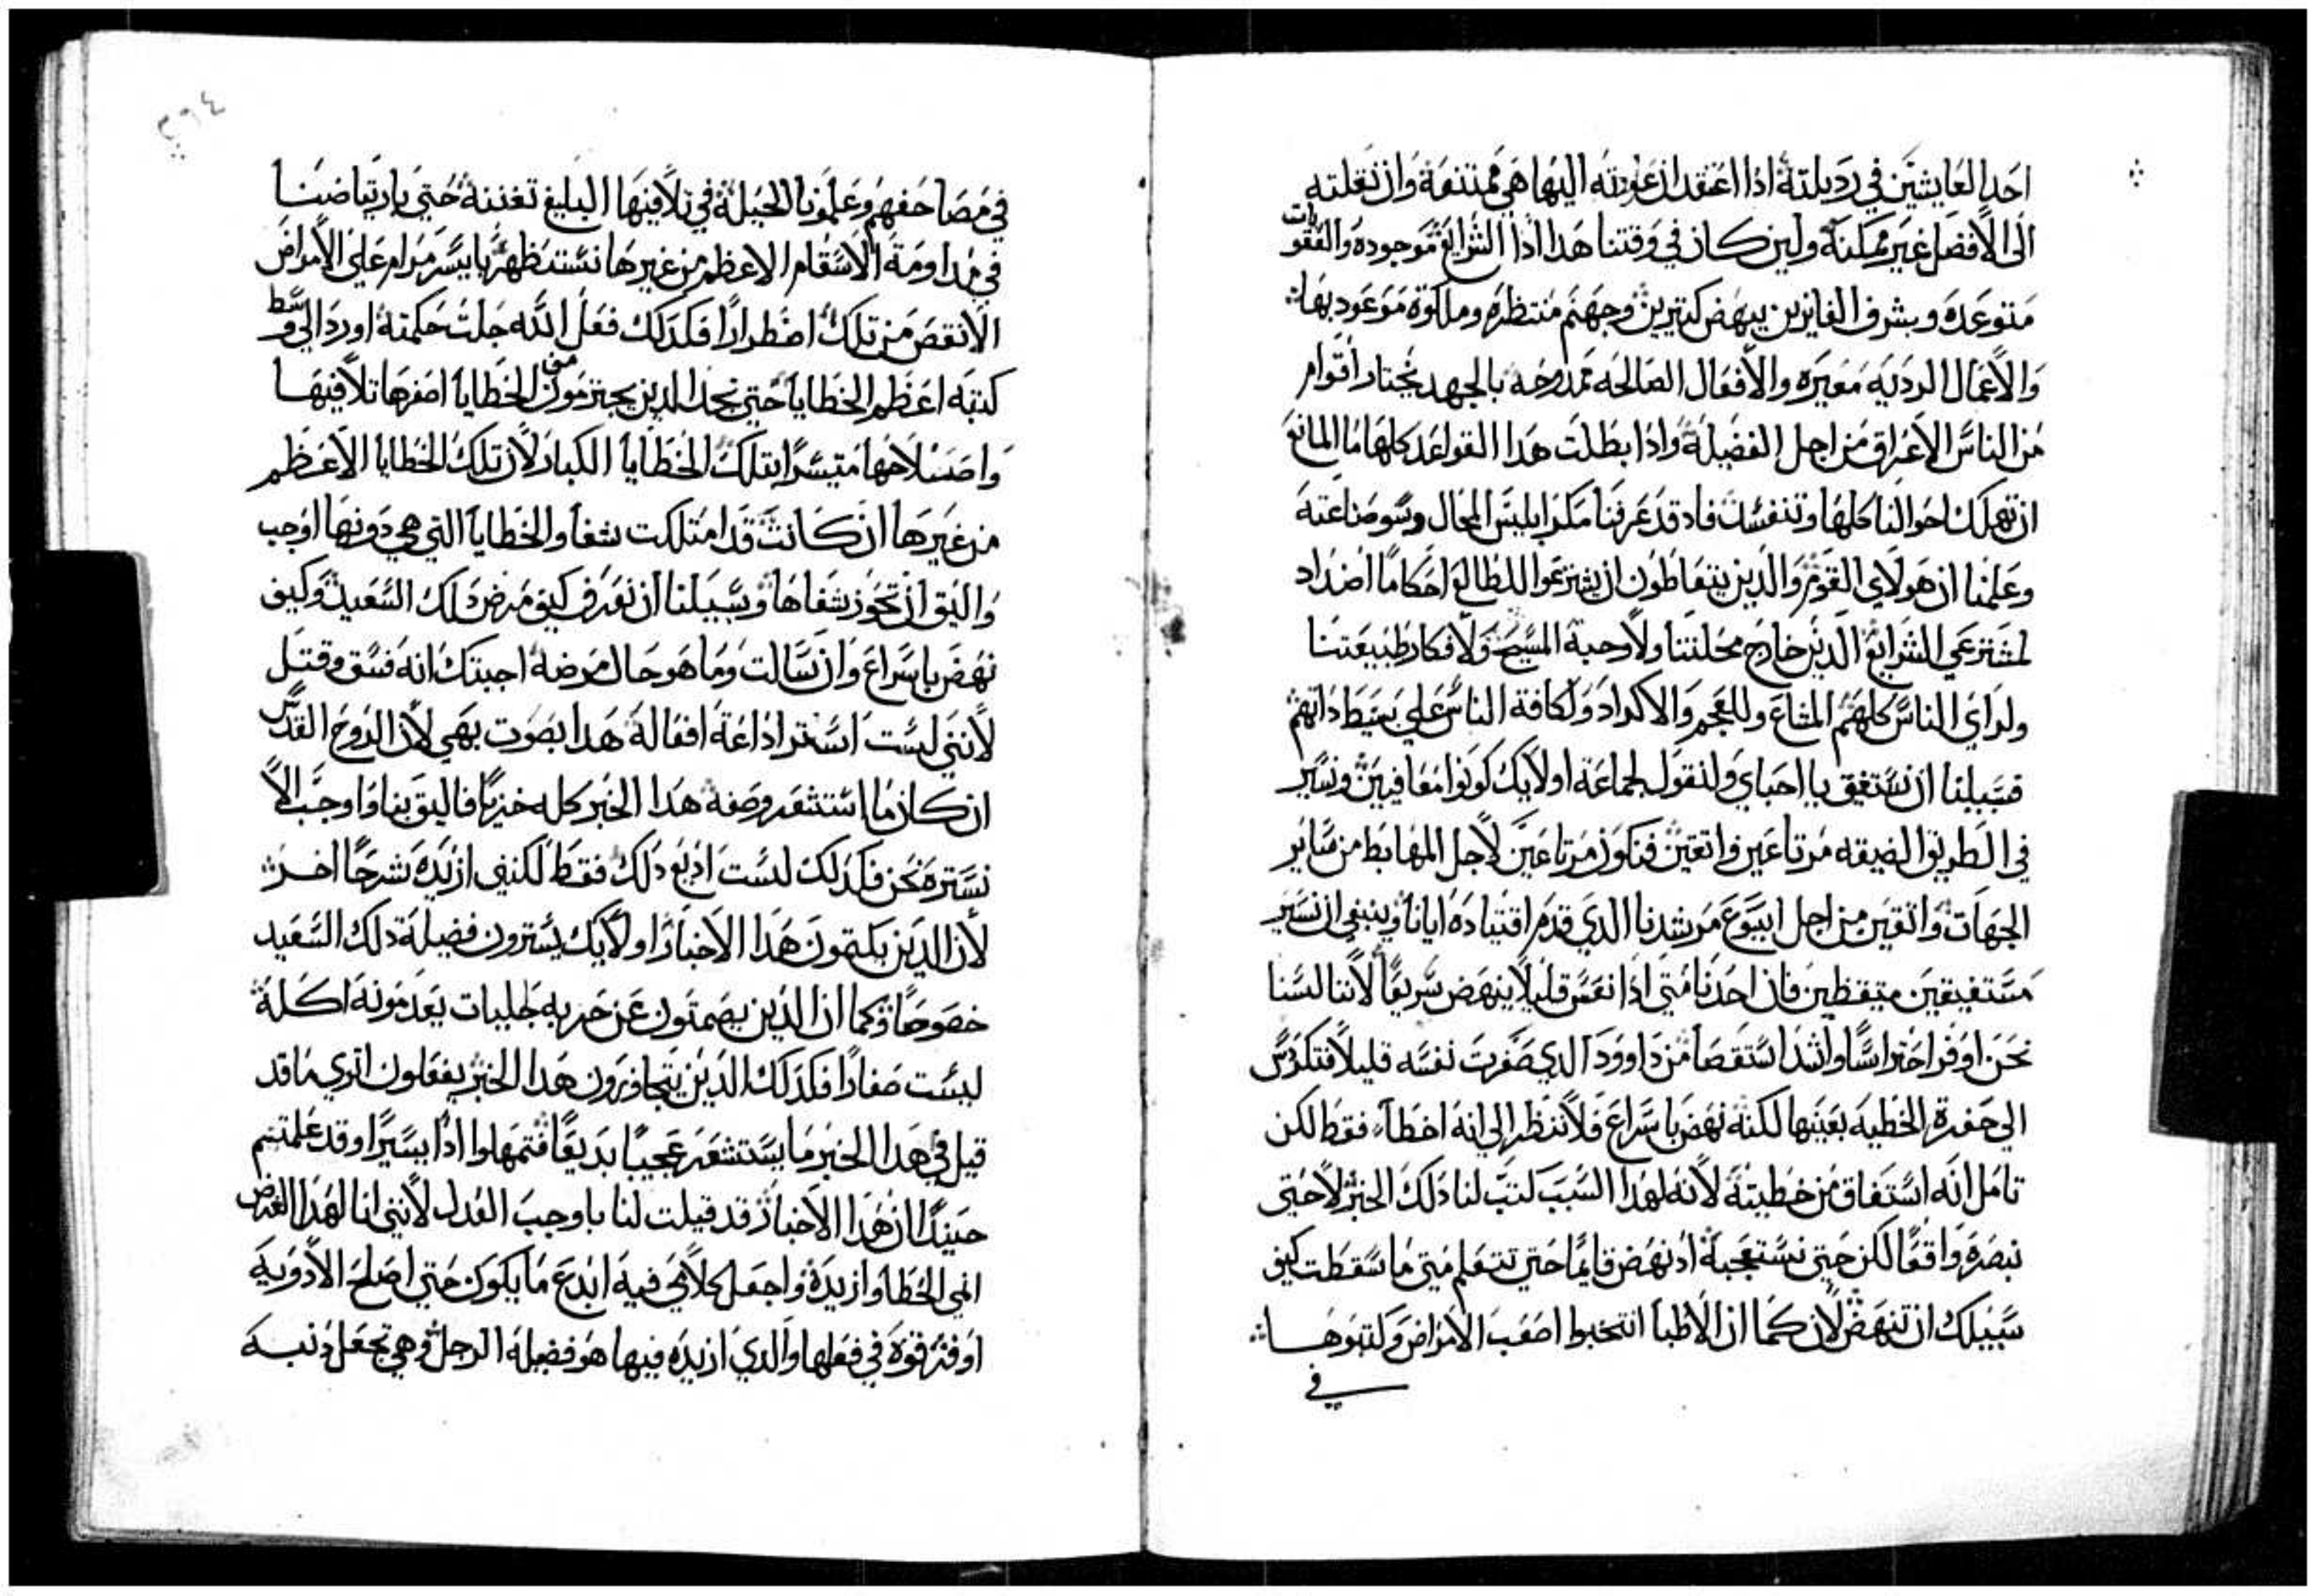 احد العايشين في رديلته اذا اعتقد ان عودته اليها هي ممتنعة وان نقلته
الى الافضل غير ممكنة ولين كان في وقتنا هدا اذا الشرايع موجوده والعقوبات
متوعده وبشرف الفايزين ينهض كتيرين وجهنم منتظره وملكوة موعود بها
والاعمال الرديه معيره والافعال الصالحه ممدوحه بالجهد يختار اقوام
من الناس الاعراق من اجل الفضيلة واذا بطلت هدا القواعد كلها ما المانع
ان تهلك احوالنا كلها وتنفسد فاد قد عرفنا مكر ابليس المحال وسو صناعته
وعلمنا ان هولاي القوم والدين يتعاطون ان يشترعوا للطالع احكاما اضداد
لمشترعي الشرايع الدين خارج محلتنا ولاوحية المسيح ولافكار طبيعتنا
ولراي الناس كلهم المشاع وللعجم والاكراد ولكافة الناس على بسيط داتهم
فسبيلنا ان نستفيق يا احباي ولنقول لجماعة اولايك كونوا معافيين ونسير
في الطريق الضيقه مرتاعين واتقين فنكون مرتاعين لاجل المهابط من ساير
الجهات واتقين من اجل ايسوع مرشدنا الدي قدم اقتياده ايانا وينبغي ان نسير
مستفيقين متيقظين فان احدنا متى اذا نعس قليلا ينهض سريعا لاننا لسنا
نحن اوفر احتراسا واشد استقصا من داوود الدي ضفرت نفسه قليلا فتكردس
الى حفرة الخطيه بعينها لكنه نهض باسراع فلا ننظر الى انه اخطا فقط لكن
تامل انه استفاق من خطيته لانه لهدا السبب كتب لنا دلك الخبر لا حتى
نبصره واقعا لكن حتى نستعجبه اد نهض قايما حتى تتعلم متى ما سقطت كيف
سبيلك ان تنهض لان كما ان الاطبا انتخبوا اصعب الامراض وكتبوها
في
٢٦٤
في مصاحفهم وعلمونا الحيلة في تلافيها البليغ تغننه حتى بارتياضنا
في مداومة الاسقام الاعظم من غيرها نستظهر بايسر مرام على الامراض
الانقص من تلك اضطرارا فكدلك فعل الله جلت حكمته اورد الى وسط
كتبه اعظم الخطايا حتى نجد الدين يجترمون من الخطايا اصغرها تلافيها
واصلاحها متيسرا بتلك الخطايا الكبار لان تلك الخطايا الاعظم
من غيرها ان كانت قد امتلكت شفا والخطايا التي هي دونها اوجب
واليق ان تحوز شفاها وسبيلنا ان نعرف كيف مرض دلك السعيد وكيف
نهض باسراع وان سالت وما هو حال مرضه اجبتك انه فسق وقتل
لانني لست استر اذاعة افعاله هدا بصوت بهي لان الروح القدس
ان كان ما استشعر وصفه هدا الخبر كله خزيا فاليق بنا واوجب الا
نستره نحن فكدلك لست اديع دلك فقط لكنني ازيده شرحا اخر
لان الدين يكتمون هدا الاخبار اولايك يسترون فضيلة دلك السعيد
خصوصا وكما ان الدين يصمتون عن حربه جليات يعدمونه اكلة
ليست صغارا فكدلك الدين يتجاوزون هدا الخبر يفعلون اترى ما قد
قيل في هدا الخبر ما يستشعر عجيبا بديعا فتمهلوا اذا يسيرا وقد علمتم
حينيدا ان هدا الاخبار قد قيلت لنا باوجب العدل لانني انا لهدا الغرض
انمي الخطا وازيده واجعل كلامي فيه ابدع ما يكون حتى اصلح الادويه
اوفر قوة في فعلها والدي ازيده فيها هو فضيلة الرجل وهي تجعل دنبه